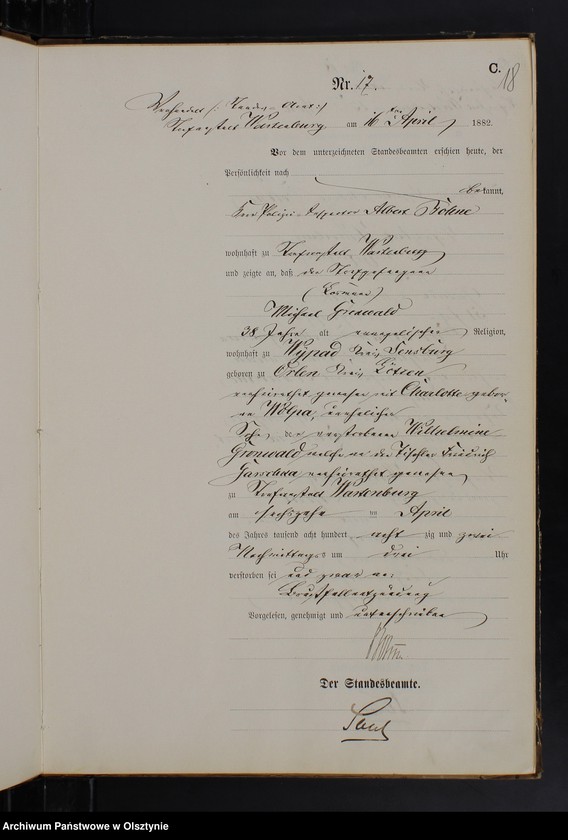 C.
18
Nr. 17.
Strafanstalt Wartenburg am 16 ten April 1882.
Vor dem unterzeichneten Standesbeamten erschien heute, der
Persönlichkeit nach
bekannt,
Albert Böhne
wohnhaft zu Strafanstalt Wartenburg
und zeigte an, daß der Strafgefangene
Michael Grenwald
38 Jahre alt evangelischer Religion,
wohnhaft zu Wypad Kreis Sensburg
geboren zu Orlen Kreis Lötzen
verheirathet gewesen mit Charlotte gebor-
ne Wolpa, unehelicher
Sohn der verstorbenen Wilhelmine
Grenwald welche an den Tischler Friedrich
verheirathet gewesen
zu Strafanstalt Wartenburg
am sechszehn ten April
des Jahres tausend acht hundert acht zig und zwei
Nachmittags um drei Uhr
verstorben sei und zwar an:
Brustfellentzündung
Vorgelesen, genehmigt und unterschrieben
Der Standesbeamte.
Archiwum Państwowe w Olsztynie